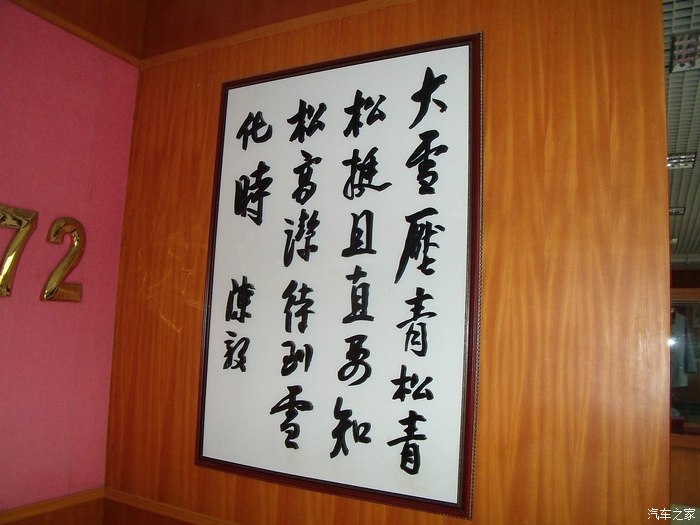 大雪壓青松青
松挺且直要知
松高潔待到雪
化時
陳毅
72
汽车之家